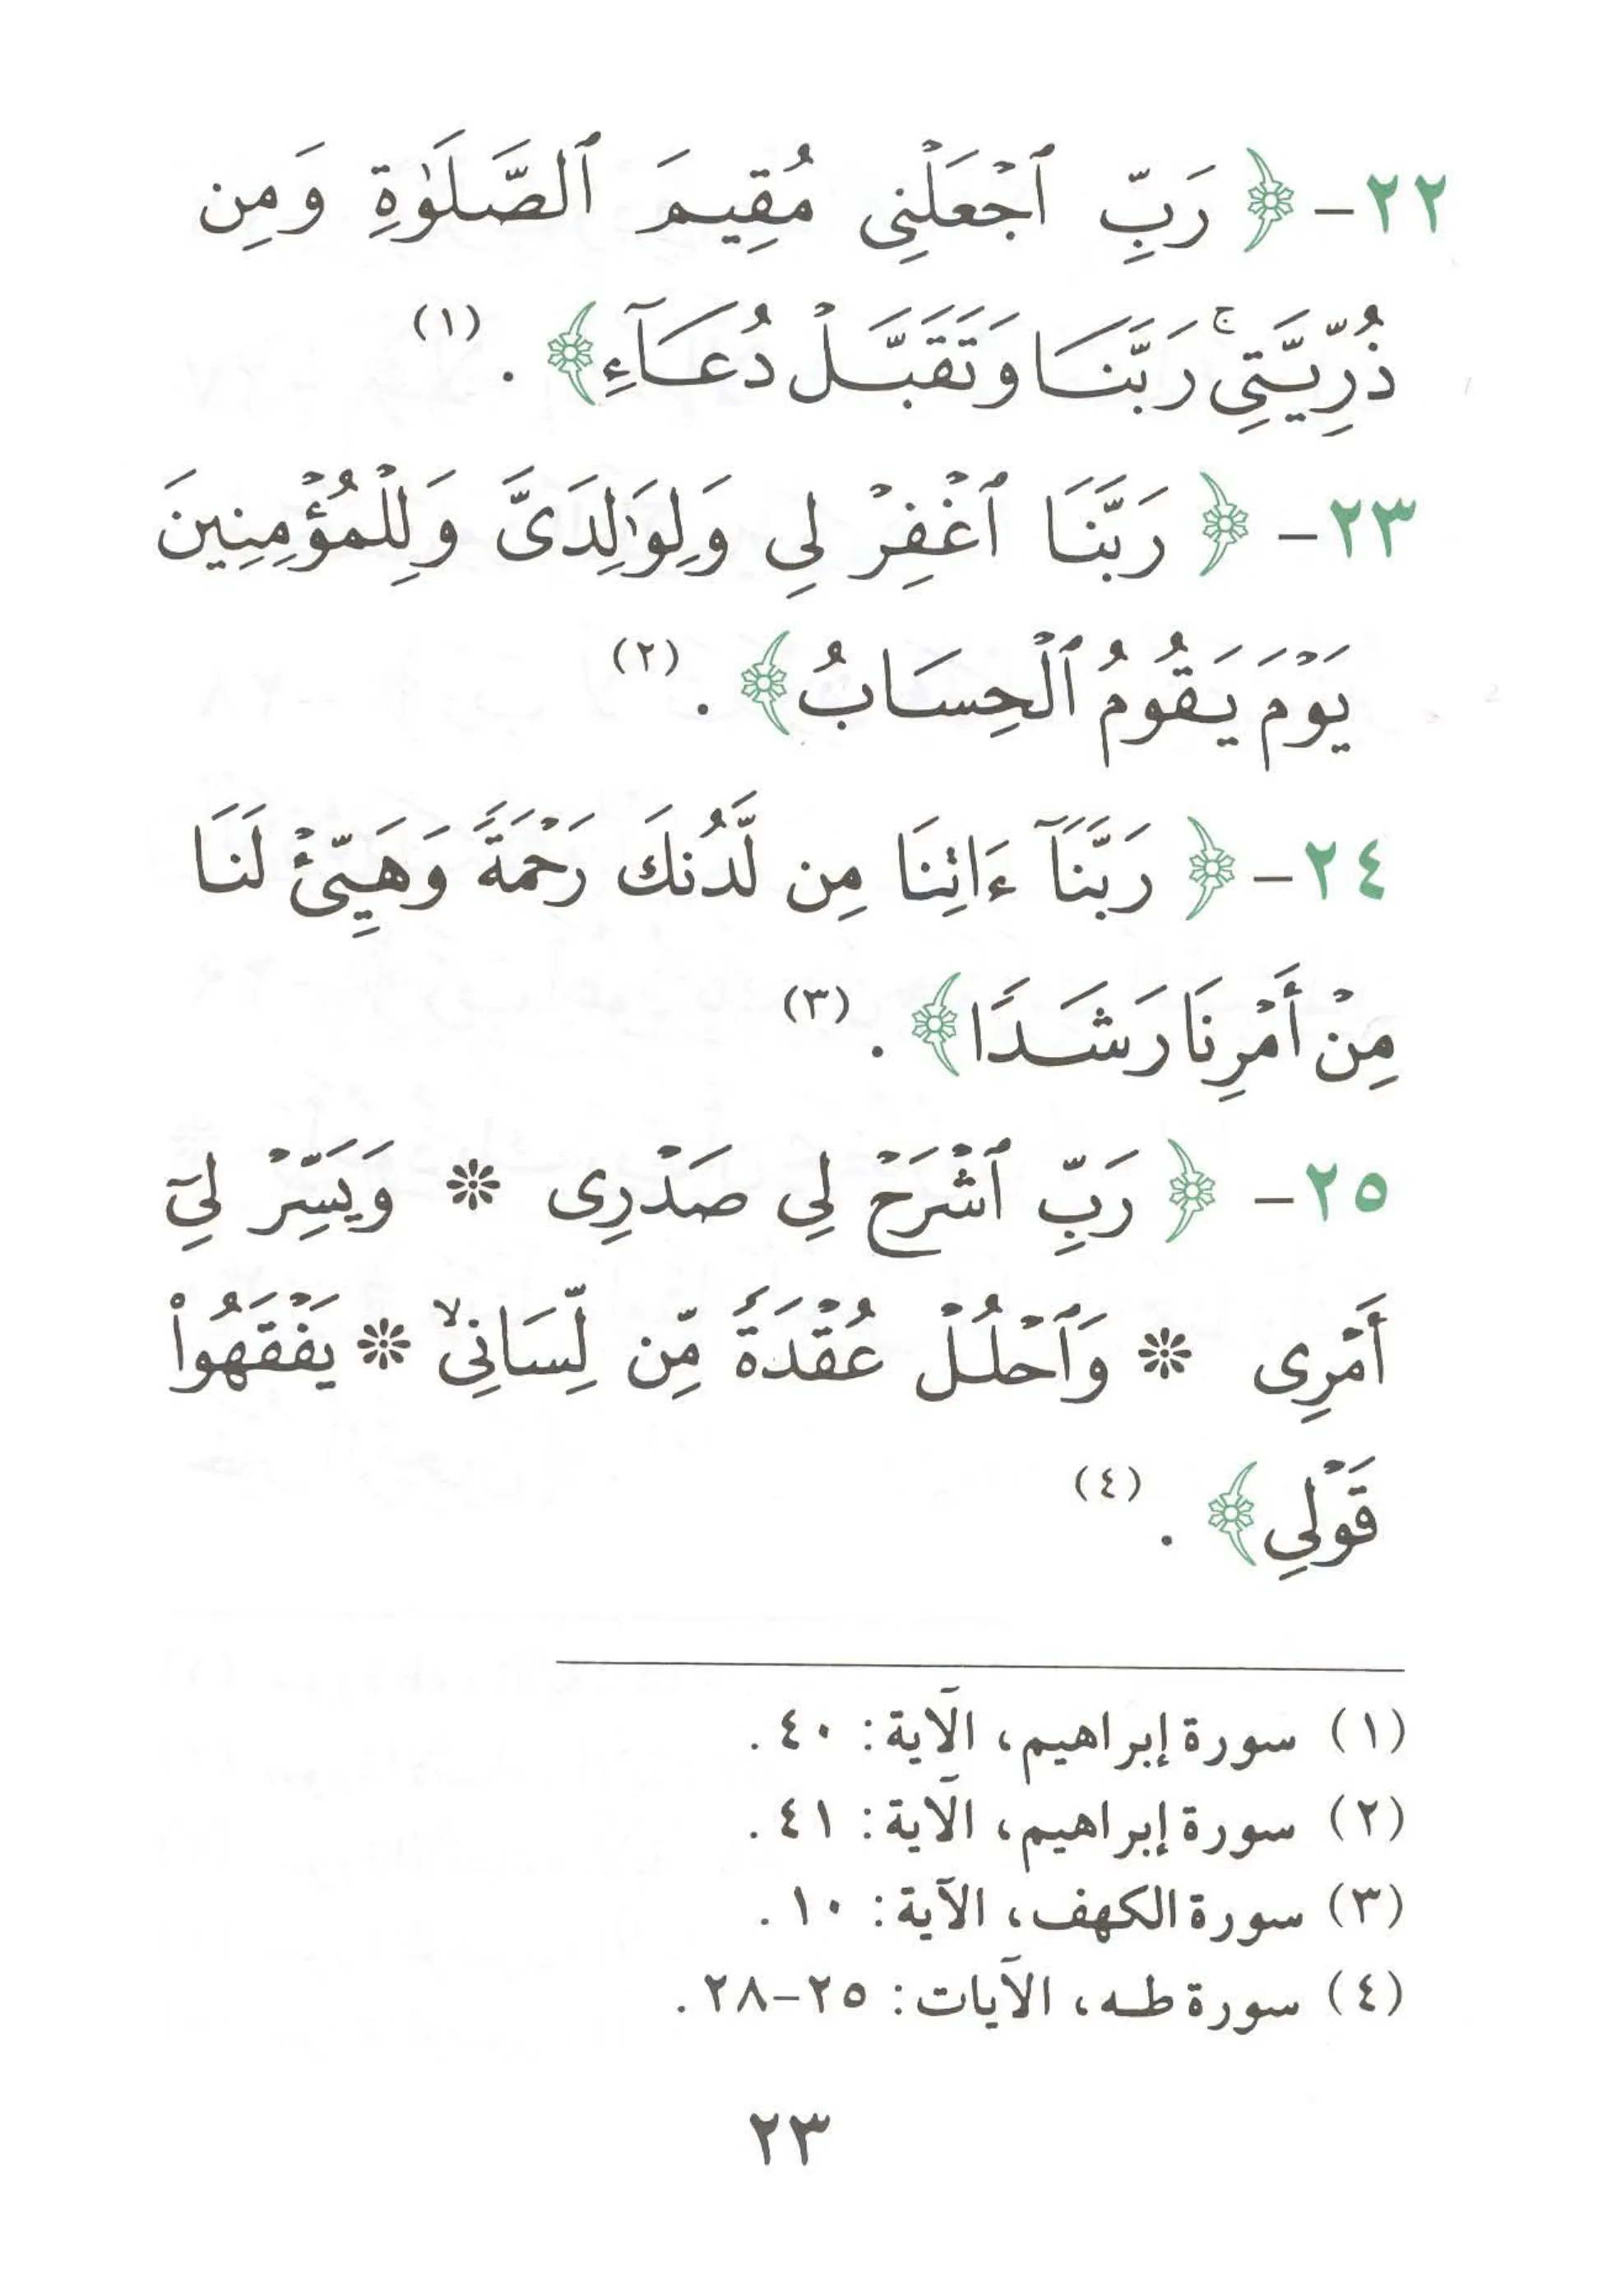 ٢٢- ﴿ رَبِّ ٱجْعَلْنِى مُقِيمَ ٱلصَّلَوٰةِ وَمِن
ذُرِّيَّتِى ۚ رَبَّنَا وَتَقَبَّلْ دُعَآءِ ﴾ . (١)
٢٣- ﴿ رَبَّنَا ٱغْفِرْ لِى وَلِوَٰلِدَىَّ وَلِلْمُؤْمِنِينَ
يَوْمَ يَقُومُ ٱلْحِسَابُ ﴾ . (٢)
٢٤- ﴿ رَبَّنَآ ءَاتِنَا مِن لَّدُنكَ رَحْمَةً وَهَيِّئْ لَنَا
مِنْ أَمْرِنَا رَشَدًا ﴾ . (٣)
٢٥- ﴿ رَبِّ ٱشْرَحْ لِى صَدْرِى * وَيَسِّرْ لِىٓ
أَمْرِى * وَٱحْلُلْ عُقْدَةً مِّن لِّسَانِى ۙ * يَفْقَهُوا۟
قَوْلِى ﴾ . (٤)
(١) سورة إبراهيم، الآية: ٤٠.
(٢) سورة إبراهيم، الآية: ٤١.
(٣) سورة الكهف، الآية: ١٠.
(٤) سورة طـه، الآيات: ٢٥-٢٨.
٢٣